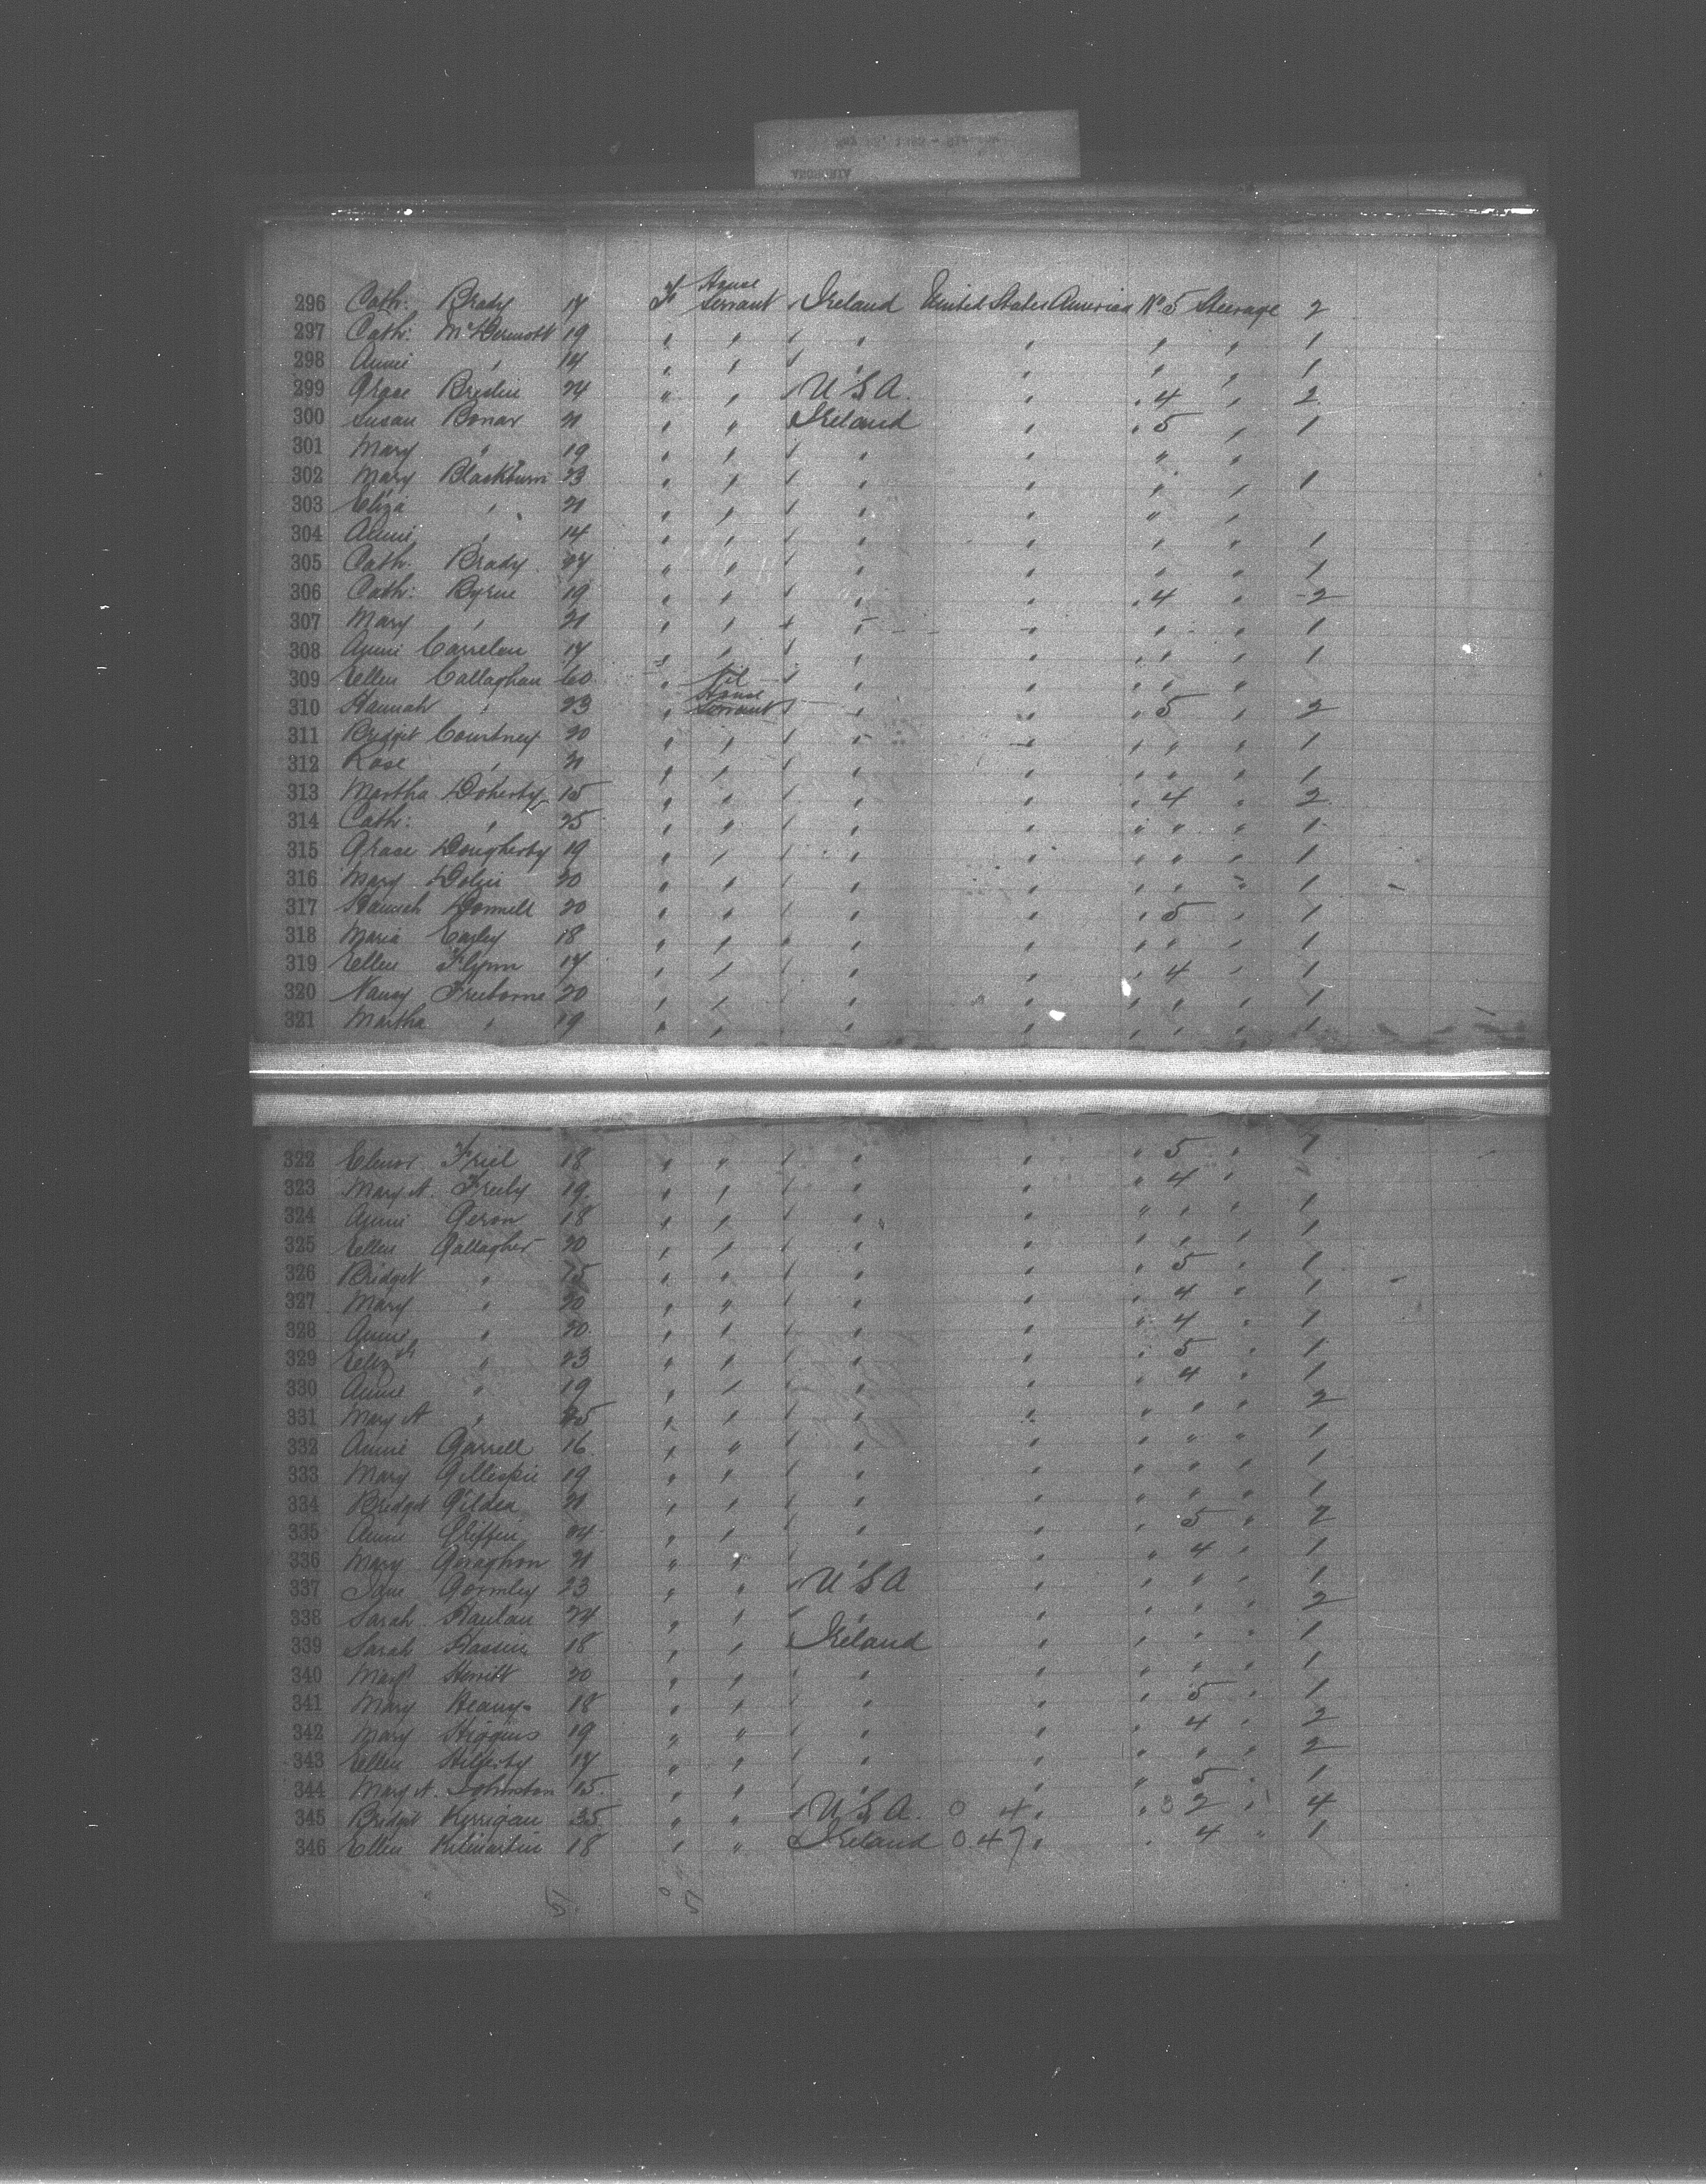 296 Cath: Brady 17 F House Servant Ireland United States America No 5 Steerage 2
297 Cath: McDermott 19 " " " " " " 1
298 Annie " 14 " " " " " " 1
299 Grace Breslin 24 " " U S A. " " 4 " 2
300 Susan Bonar 21 " " Ireland " " 5 " 1
301 Mary " 19 " " " " " "
302 Mary Blackburn 23 " " " " " " 1
303 Eliza " 21 " " " " " "
304 Annie " 14 " " " " " " 1
305 Cath: Brady 27 " " " " " " 1
306 Cath: Byrne 19 " " " " " 4 " 2
307 Mary " 21 " " " " " " 1
308 Annie Carrelan 17 " " " " " " " 1
309 Ellen Callaghan 60 " Nil " " " " "
310 Hannah " 23 " House Servant " " " 5 " 2
311 Bridget Courtney 20 " " " " " " " 1
312 Rose " 21 " " " " " " " 1
313 Martha Doherty 15 " " " " " 4 " 2
314 Cath: " 25 " " " " " " " 1
315 Grace Dougherty 19 " " " " " " " 1
316 Mary Dolin 20 " " " " " " " 1
317 Hannah Donnell 20 " " " " " 5 " 1
318 Maria Earley 18 " " " " " " " 1
319 Ellen Flynn 17 " " " " " 4 " 1
320 Nancy Freeborne 20 " " " " " " " 1
321 Martha " 19 " " " " " " " 1
322 Elenor Friel 18 " " " " " 5 " 1
323 Mary A. Freely 19 " " " " " 4 "
324 Annie Geron 18 " " " " " " " 1
325 Ellen Gallagher 20 " " " " " " " 1
326 Bridget " 15 " " " " " 5 " 1
327 Mary " 20 " " " " " 4 " 1
328 Annie " 20 " " " " " 4 " 1
329 Elizth " 23 " " " " " 5 " 1
330 Annie " 19 " " " " " 4 " 1
331 Mary A " 25 " " " " " " " 2
332 Annie Garrell 16 " " " " " " " 1
333 Mary Gillespie 19 " " " " " " " 1
334 Bridget Gildea 21 " " " " " " " 1
335 Annie Griffin 24 " " " " " 5 " 2
336 Mary Geraghon 21 " " " " " 4 " 1
337 Jane Gormley 23 " " U S A " " " " 1
338 Sarah Hanlan 24 " " " " " " " 2
339 Sarah Hassin 18 " " Ireland " " " " 1
340 Margt Hewitt 20 " " " " " " " 1
341 Mary Heany 18 " " " " " 5 " 1
342 Mary Higgins 19 " " " " " 4 " 2
343 Ellen Hilferty 17 " " " " " " " 2
344 Mary A. Johnston 15 " " " " " 5 " 1
345 Bridget Kerrigan 35 " " U S A. 0 4 " " 2 " 4
346 Ellen Kilmartin 18 " " Ireland 0 47 " " 4 " 1